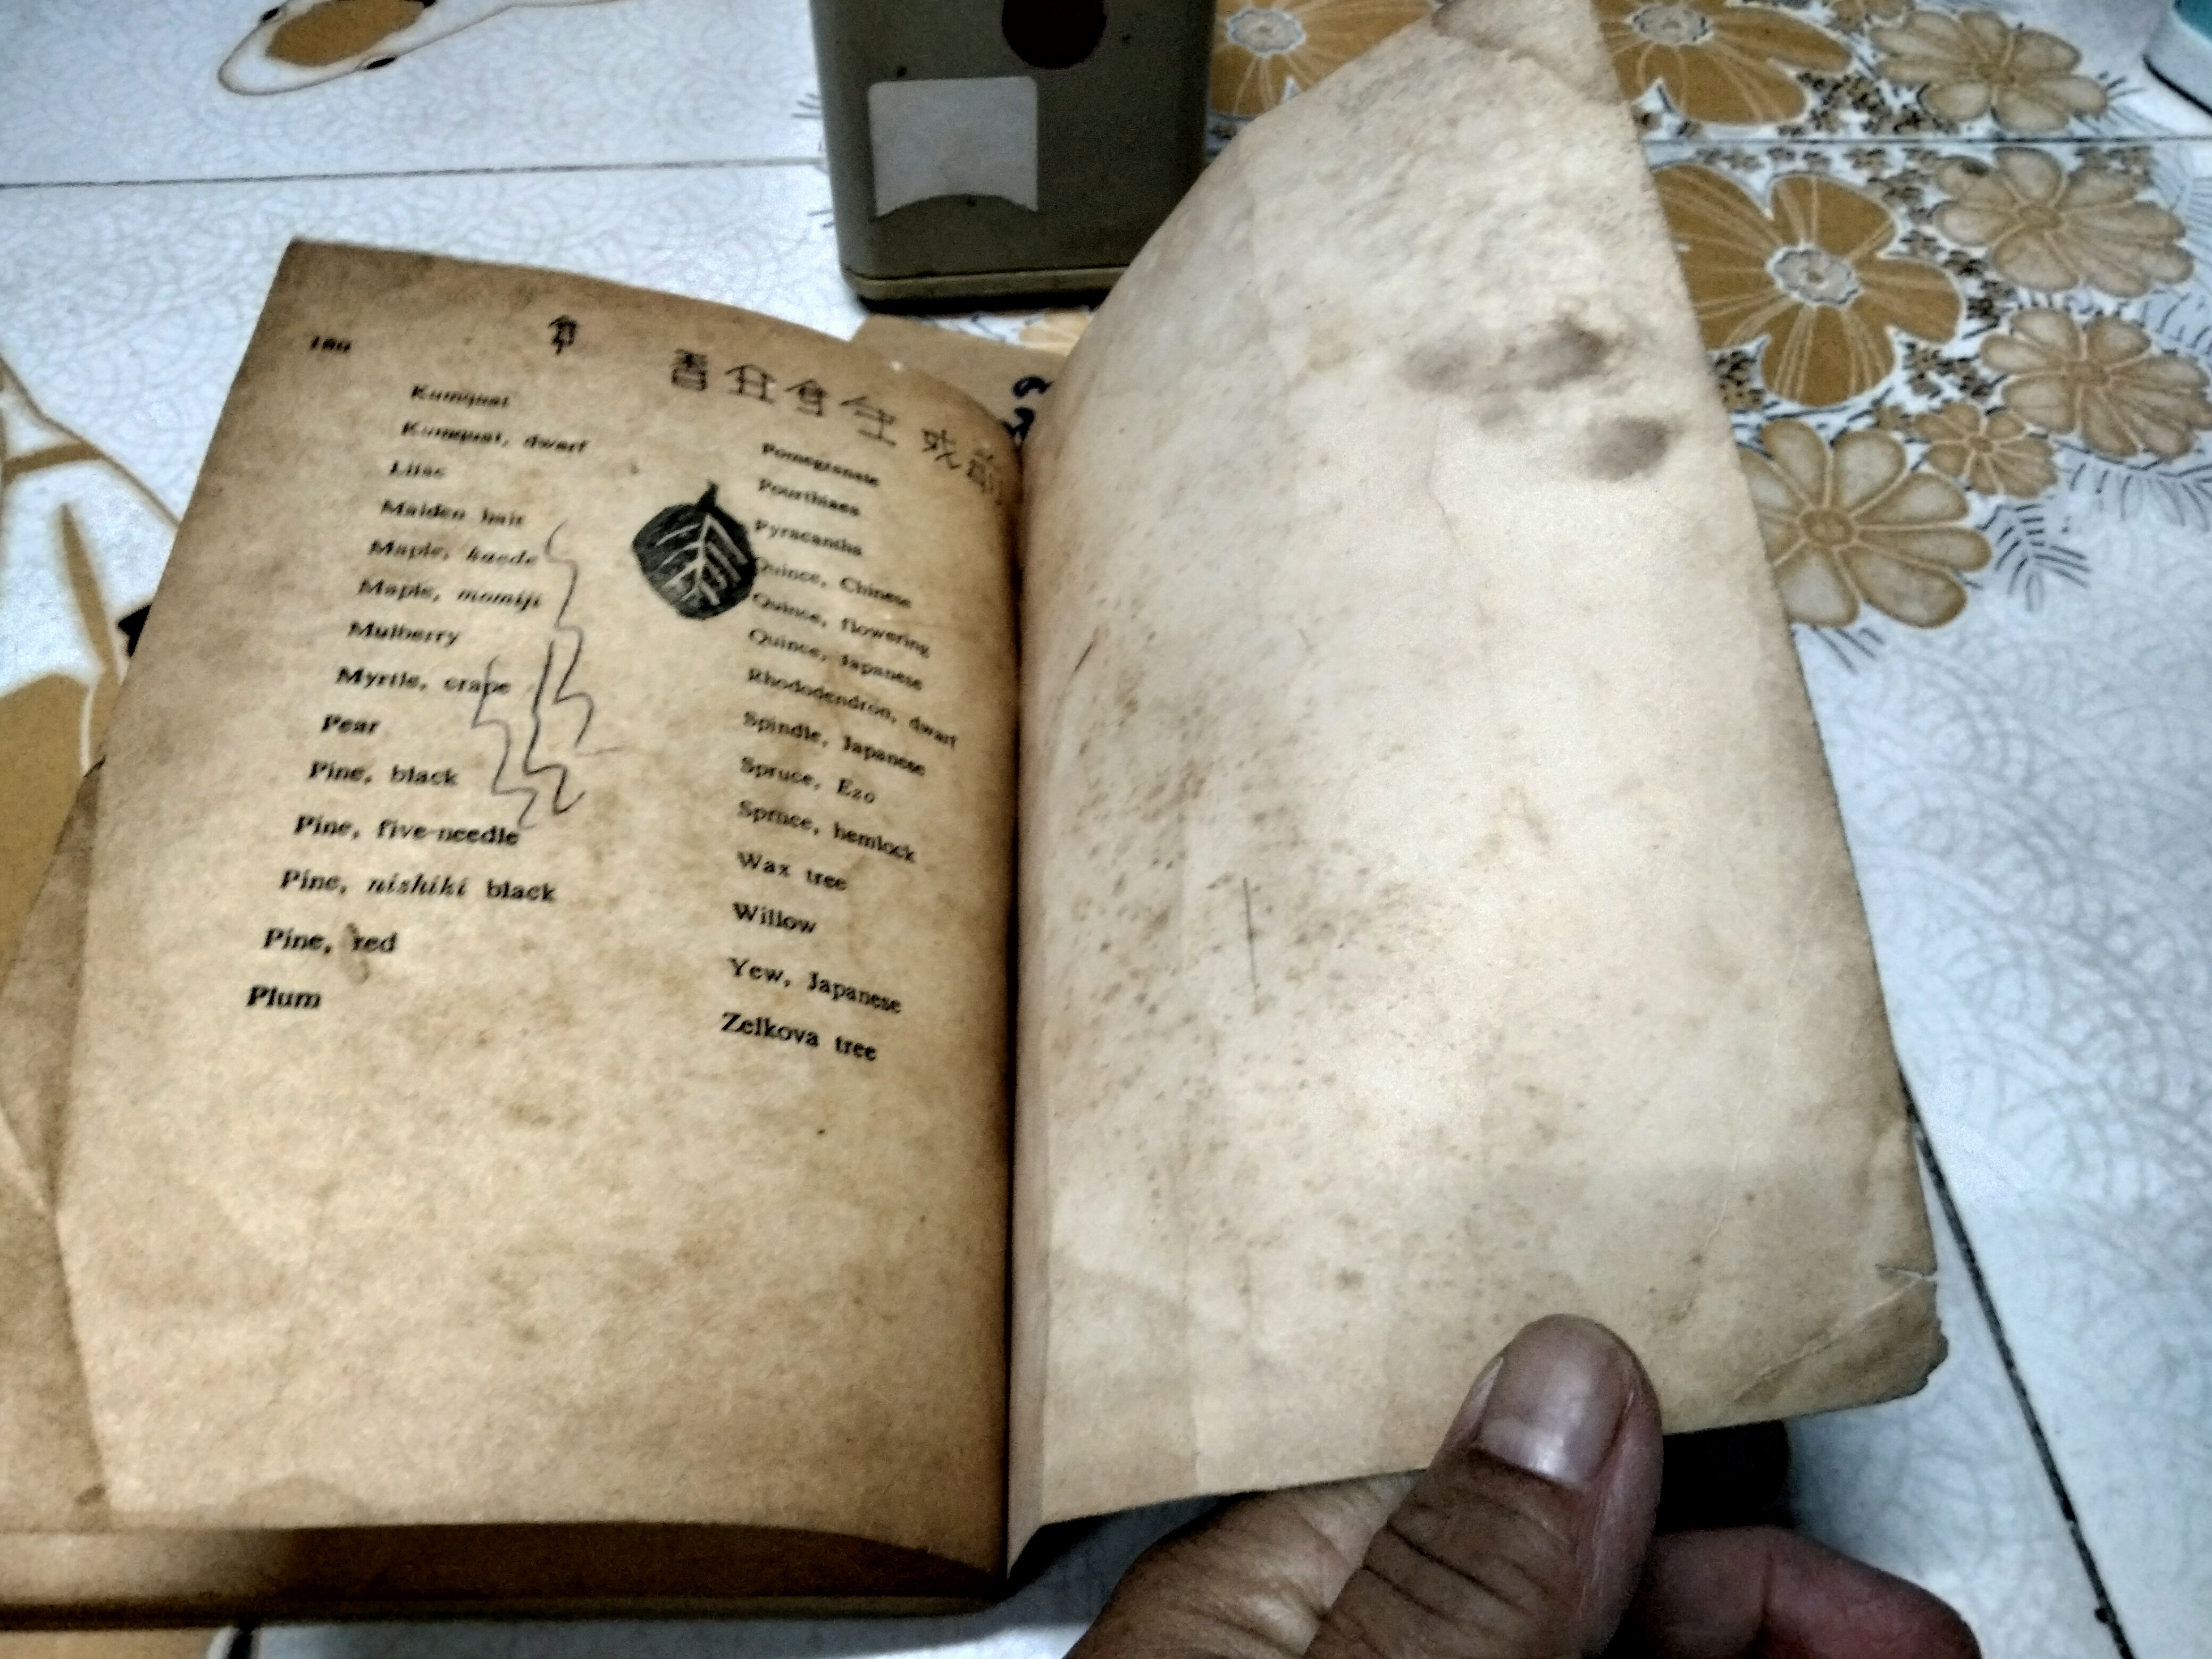 180
Kumquat
Kumquat, dwarf
Lilac
Maiden hair
Maple, kaede
Maple, momiji
Mulberry
Myrtle, crape
Pear
Pine, black
Pine, five-needle
Pine, nishiki black
Pine, red
Plum
Pomegranate
Pourthiaea
Pyracantha
Quince, Chinese
Quince, flowering
Quince, Japanese
Rhododendron, dwarf
Spindle, Japanese
Spruce, Ezo
Spruce, hemlock
Wax tree
Willow
Yew, Japanese
Zelkova tree